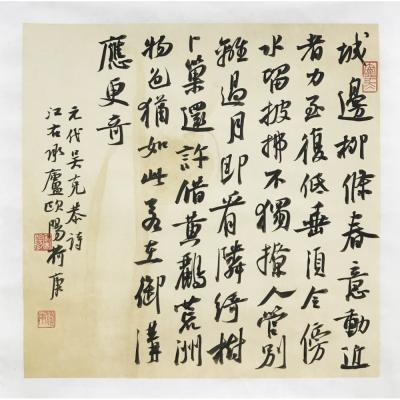 城邊柳條春意動近
者力至復低垂須令傍
水留披拂不獨撩人管別
離過月即看隣綺樹
卜巢還許借黃鸝荒洲
物色猶如此若在御溝
應更奇
元代吴克恭詩
江右承廬歐陽荷庚